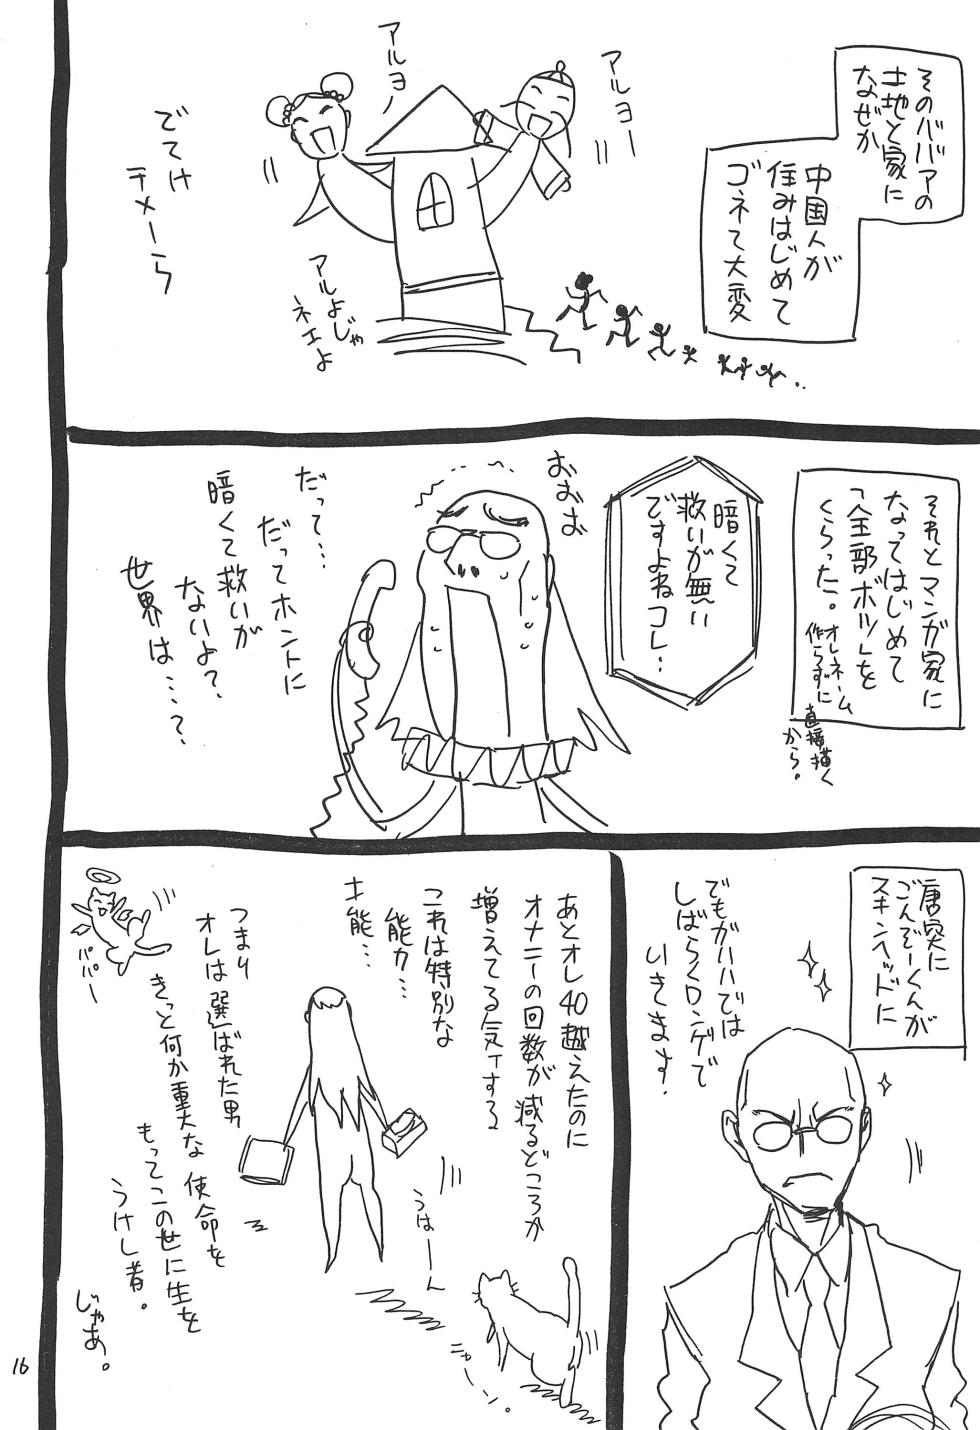 そのババアの
土地と家に
なぜか
中国人が
住みはじめて
ゴネて大変
アルヨー
アルヨー
でてけ
テメーら
アルよじゃ
ネェよ
それとマンガ家に
なってはじめて
「全部ボツ」を
くらった。
オレネーム
作らずに
直接描く
から。
暗くて
救いが無い
ですよねコレ…
おおお
だって…
だってホントに
暗くて救いが
ないよ?
世界は…?
唐突に
ごんぞーくんが
スキンヘッドに
でもガハハでは
しばらくロンゲで
いきます!
あとオレ40越えたのに
オナニーの回数が減るどころか
増えてる気ィする
これは特別な
能力…
才能…
つまり
オレは選ばれた男
きっと何か重大な使命を
もってこの世に生を
うけし者。
じゃあ。
パパー
うはーん
ニャーン。
16